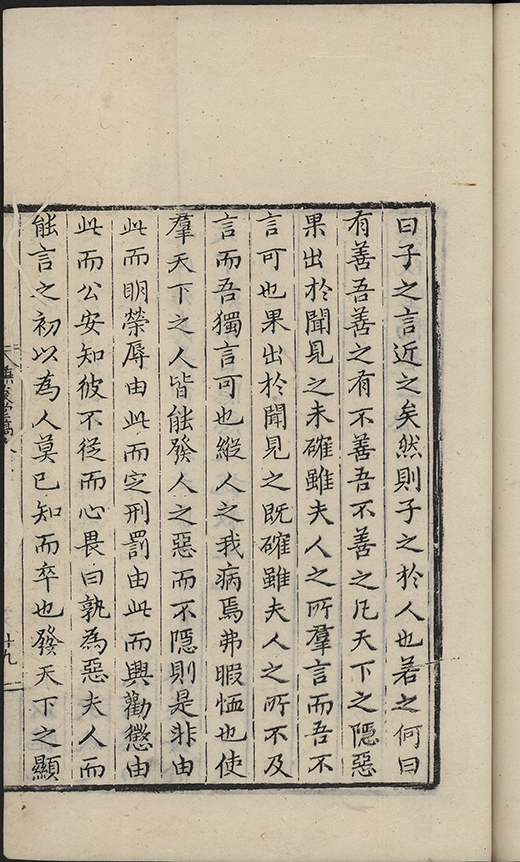 曰子之言近之矣然則子之於人也若之何曰
有善吾善之有不善吾不善之凡天下之隱惡
果出於聞見之未確雖夫人之所羣言而吾不
言可也果出於聞見之既確雖夫人之所不及
言而吾獨言可也縱人之我病焉弗暇恤也使
羣天下之人皆能發人之惡而不隱則是非由
此而明榮辱由此而定刑罰由此而興勸懲由
此而公安知彼不從而心畏曰孰為惡夫人而
能言之初以為人莫已知而卒也發天下之顯
廿九